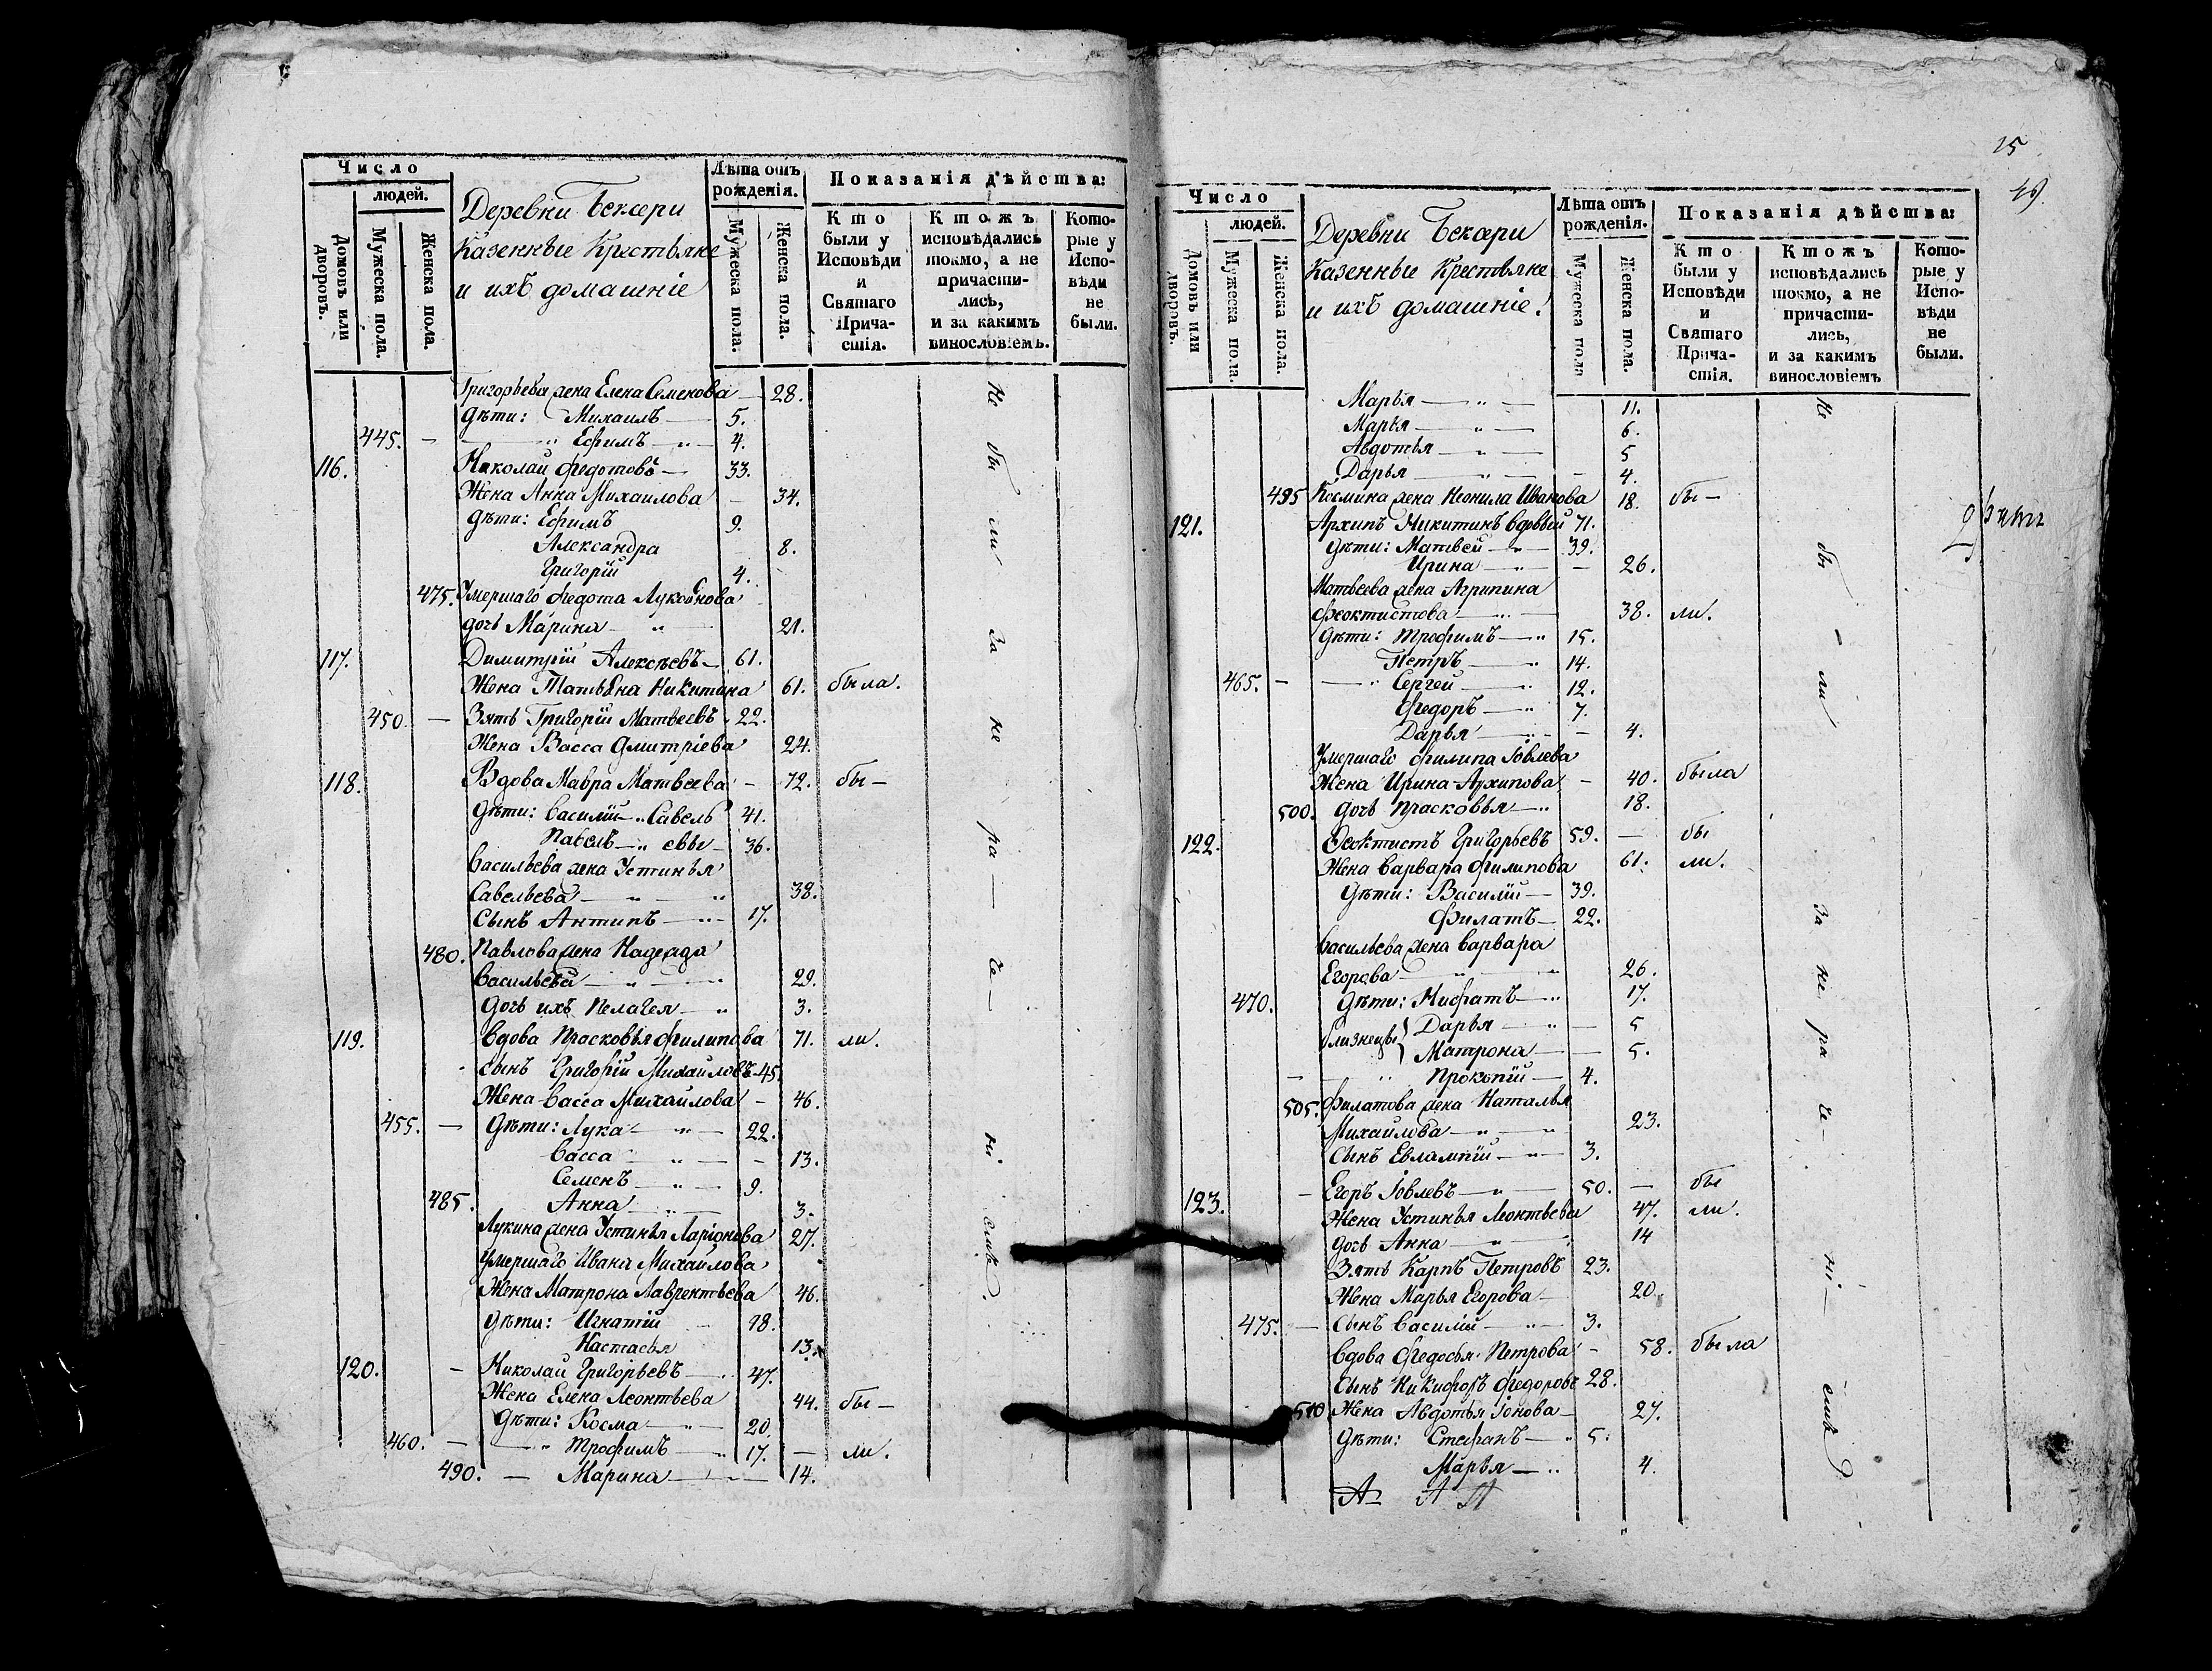 Число
людей.
Домовъ или дворовъ.
Мужеска пола.
Женска пола.
Деревни Бекери
Казенные Крестьяне
и ихъ домашніе
Лѣта отъ рожденія.
Мужеска пола.
Женска пола.
Показанія дѣйства:
Кто были у Исповѣди и Святаго Причастія.
Ктожъ исповѣдались токмо, а не причастились, и за какимъ винословіемъ.
Которые у Исповѣди не были.
Григорьева жена Елена Семенова — 28.
Дѣти: Михаилъ — 5.
445. — " Ефимъ — " — 4.
116. Николай Федотовъ — 33.
Жена Анна Михаилова — 34.
Дѣти: Ефимъ 9.
Александра 8.
Григорій 4.
475. Умершаго Федота
дочь Марина — " — 21.
117. Димитрій Алексѣевъ — 61.
Жена Татьяна Никитина 61. была.
450. — Зять Григорій Матвеевъ 22.
Жена Васса Дмитріева 24.
118. Вдова Мавра Матвеева — 72. бы —
Дѣти: Василій — " Савель 41.
Павелъ — " евы — 36.
Васильева жена Устинья
Савельева — " — " 38.
Сынъ Антипъ — " — 17.
480. Павлова жена Надежда
Васильева — " — " 29.
Дочь ихъ Пелагея — " 3.
119. Вдова Прасковья Филипова 71. ли.
Сынъ Григорій Михайловъ 45.
Жена Васса Михайлова — 46.
455. — Дѣти: Лука — " — 22.
Васса — " — 13.
Семенъ — " — 9.
485. Анна — " — 3.
Лукина жена Устинья Ларіонова 27.
Умершаго Ивана Михайлова
Жена Матрона Лаврентьева 46.
Дѣти: Игнатій — 18.
Настасья 13.
120. — Николай Григорьевъ — 47.
Жена Елена Леонтьева 44. бы —
Дѣти: Косма — " — 20.
460. — " Трофимъ — " 17. — ли.
490. — Марина — " — 14.
Не бы ли за не ра — че — ні емъ.
25
49
Число
людей.
Домовъ или дворовъ.
Мужеска пола.
Женска пола.
Деревни Бекери
Казенные Крестьяне
и ихъ домашніе.
Лѣта отъ рожденія.
Мужеска пола
Женска пола.
Показанія дѣйства:
Кто были у Исповѣди и Святаго Причастія.
Ктожъ исповѣдались токмо, а не причастились, и за какимъ винословіемъ
Которые у Исповѣди не были.
Марья — " — 11.
Марья — " — 6.
Авдотья — " — 5
Дарья — " — 4.
495 Космина жена Неонила Иванова 18. бы —
121. Архипъ Никитинъ вдовый 71.
Дѣти: Матвей — " — 39.
Ирина — " — 26.
Матвеева жена Агрипина
Феоктистова — " — 38. ли.
Дѣти: Трофимъ — " 15.
Петръ — " 14.
465. — " Сергей — " 12.
Федоръ — " 7.
Дарья — " — 4.
Умершаго Филипа Іовлева
Жена Ирина Архипова — 40. была
500. Дочь Прасковья — " 18.
122. Феоктистъ Григорьевъ 59. — бы
Жена Варвара Филипова 61. ли.
Дѣти: Василій — 39.
Филатъ — 22.
Васильева жена Варвара
Егорова — " — " 26.
470. Дѣти: — " 17.
близнецы } Дарья — " — 5
Матрона — — 5.
— " Прокопій — 4.
505. Филатова жена Наталья
Михайлова — " — " 23.
Сынъ Евлампій — " — 3.
123. — Егоръ Іовлевъ — " — 50. — бы
Жена Устинья Леонтьева 47. ли.
Дочь Анна — " — 14
Зять Карпъ Петровъ 23.
Жена Марья Егорова — 20.
475. — Сынъ Василій — " — 3.
Вдова Федосья Петрова — 58. была
Сынъ Никифоръ Федоровъ 28.
510 Жена Авдотья Іонова — 27.
Дѣти: Стефанъ — " 5.
Марья — " 4.
Не бы — ли за не ра че — ні — емъ